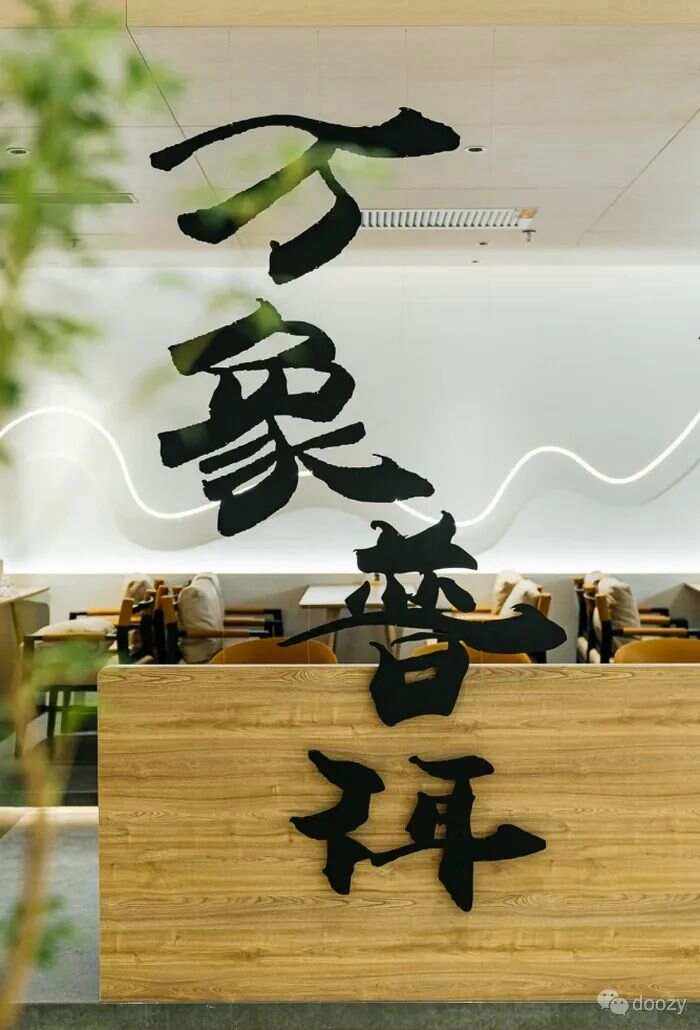 万象普洱
doozy